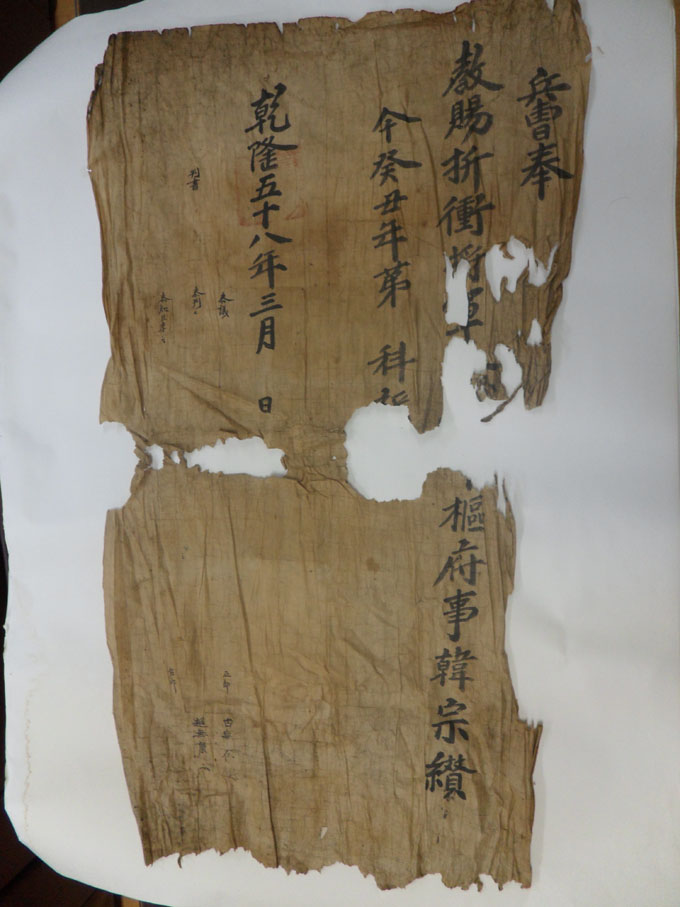 兵曹奉
教賜折衝將軍 樞府事韓宗纘
今癸丑年第 科
乾隆五十八年三月 日
參議
正郎
參判
判書